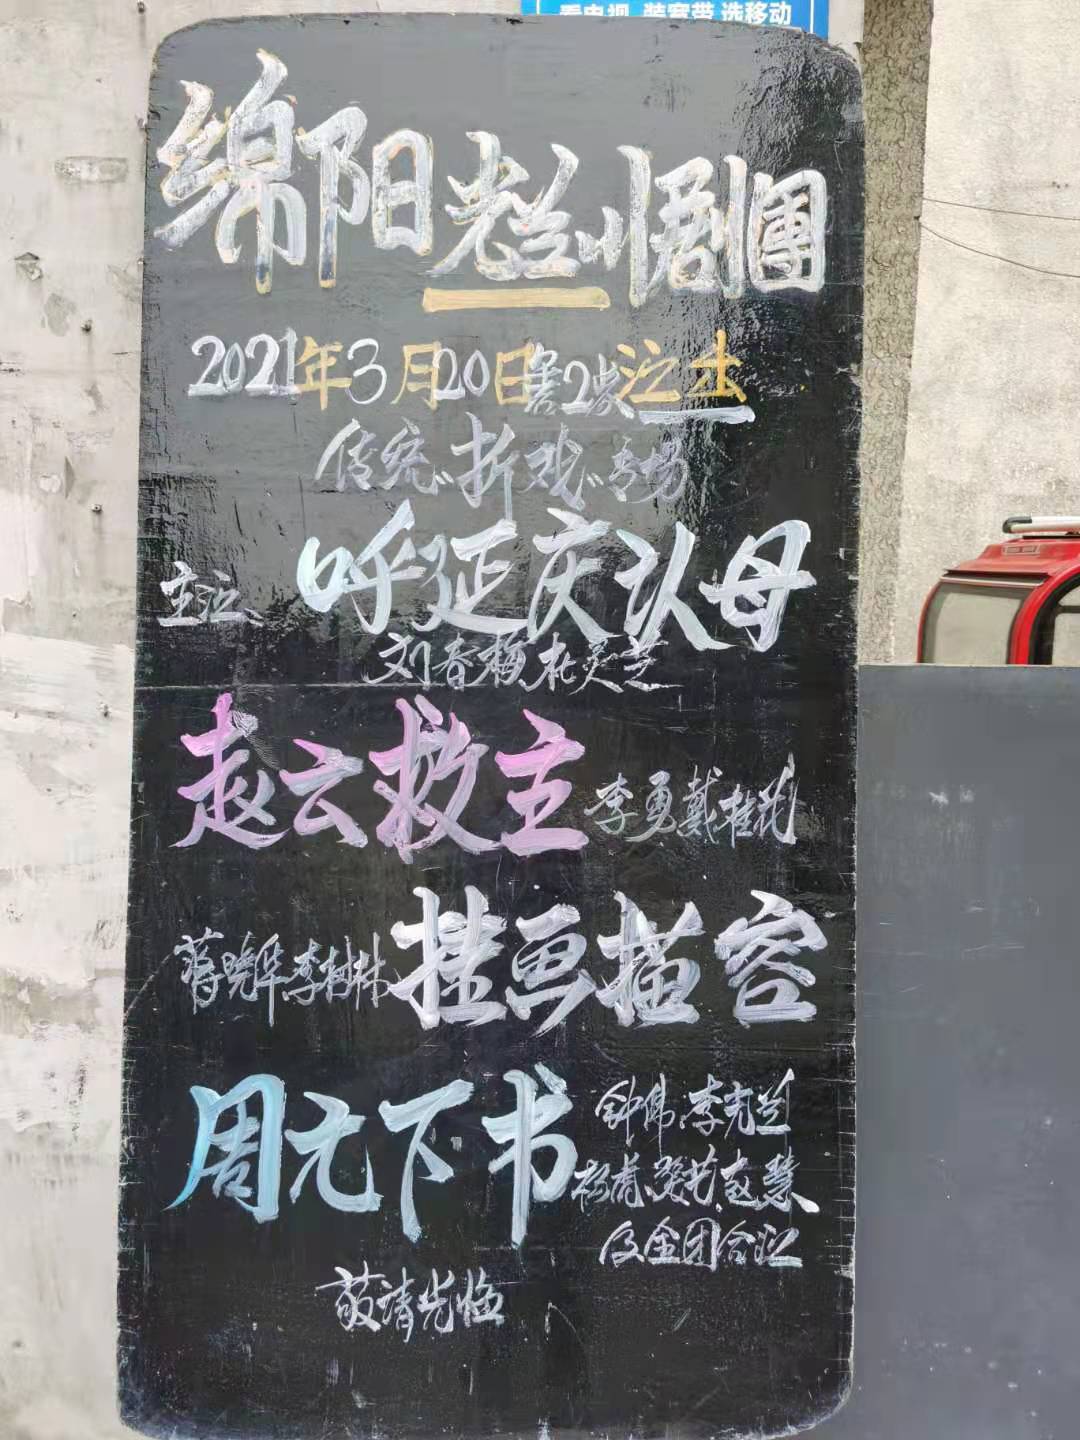 看电视 装宽带 选移动
绵阳老兰川剧團
2021年3月20日第2次泣出
传统"折戏"专场
呼延庆认母
主泣、
刘春梅、杜灵芝
赵云救主 李勇戴桂花
蒋晓华李树林 挂画描容
周元下书
钟伟、李克兰
及全团合泣
敬请光临